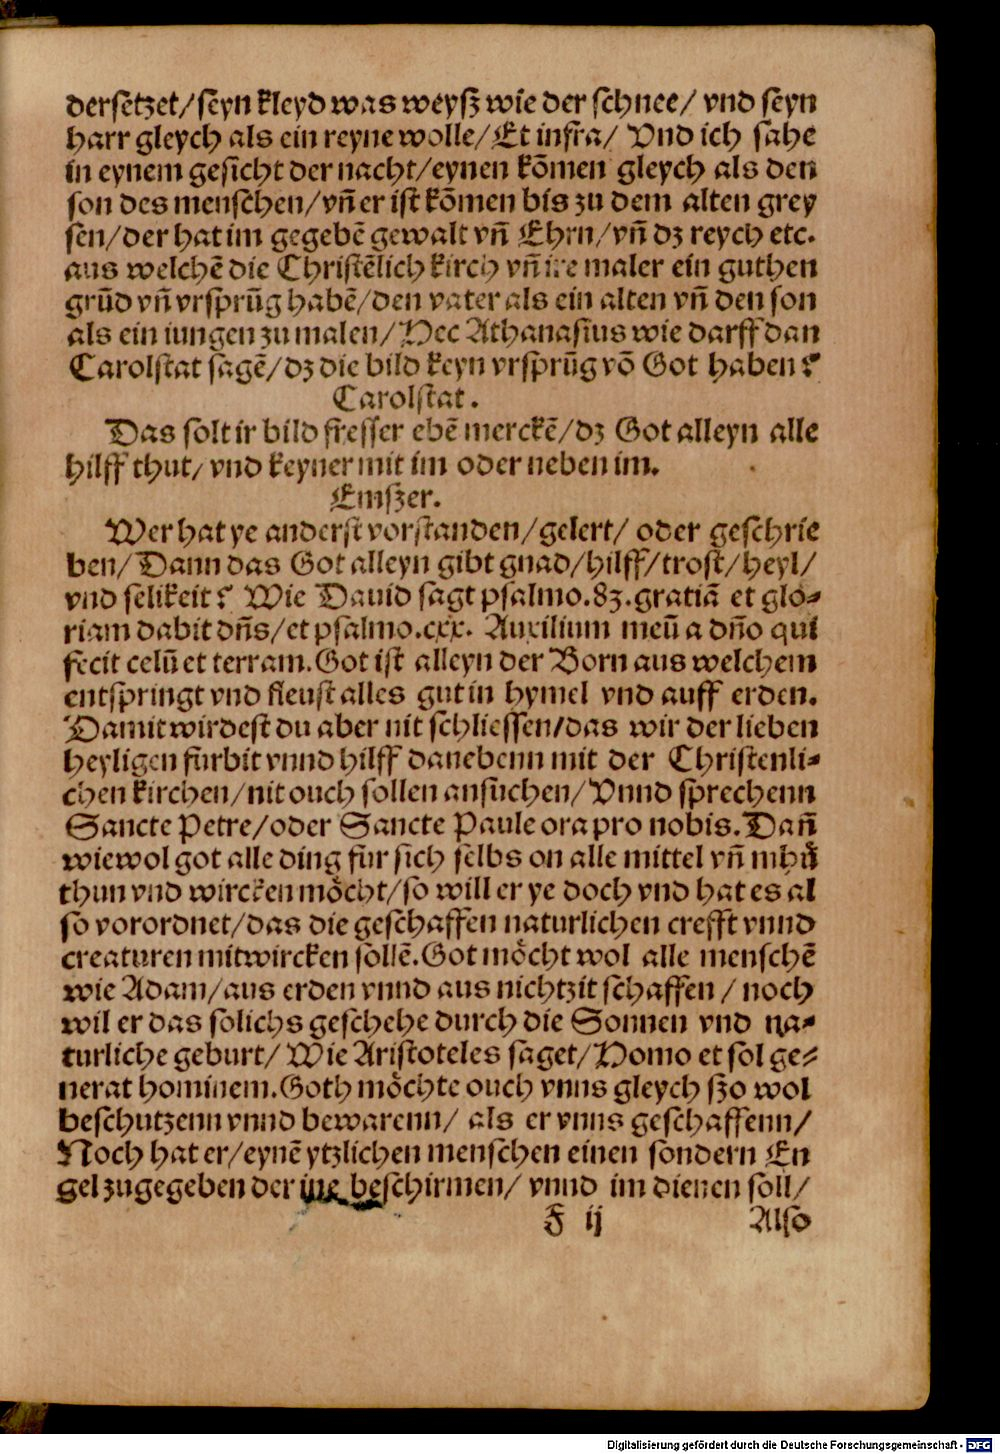 dersetzet/seyn kleyd was weysz wie der schnee/ vnd seyn
harr gleych als ein reyne wolle/Et infra/ Vnd ich sahe
in eynem gesicht der nacht/eynen kōmen gleych als den
son des menschen/vn̄ er ist kōmen bis zu dem alten grey
sen/der hat im gegebē gewalt vn̄ Ehrn/vn̄ dz reych etc.
aus welchē die Christēlich kirch vn̄ ire maler ein guthen
grūd vn̄ vrsprūg habē/den vater als ein alten vn̄ den son
als ein iungen zu malen/Hec Athanasius wie darff dan
Carolstat sagē/dz die bild keyn vrsprūg vō Got haben?
Carolstat.
Das solt ir bild fresser ebē merckē/dz Got alleyn alle
hilff thut/ vnd keyner mit im oder neben im.
Emszer.
Wer hat ye anderst vorstanden/gelert/ oder geschrie
ben/Dann das Got alleyn gibt gnad/hilff/trost/heyl/
vnd selikeit? Wie Dauid sagt psalmo.83.gratiā et glo-
riam dabit dn̄s/et psalmo.cxx. Auxilium meū a dn̄o qui
fecit celū et terram.Got ist alleyn der Born aus welchem
entspringt vnd fleust alles gut in hymel vnd auff erden.
Damit wirdest du aber nit schliessen/das wir der lieben
heyligen furbit vnnd hilff danebenn mit der Christenli-
chen kirchen/nit ouch sollen ansuchen/Vnnd sprechenn
Sancte Petre/oder Sancte Paule ora pro nobis.Dan̄
wiewol got alle ding fur sich selbs on alle mittel vn̄ mhů
thun vnd wircken möcht/so will er ye doch vnd hat es al
so vorordnet/das die geschaffen naturlichen crefft vnnd
creaturen mitwircken sollē.Got möcht wol alle menschē
wie Adam/aus erden vnnd aus nichtzit schaffen/noch
wil er das solichs geschehe durch die Sonnen vnd na-
turliche geburt/Wie Aristoteles saget/Homo et sol ge-
nerat hominem.Goth möchte ouch vnns gleych szo wol
beschutzenn vnnd bewarenn/ als er vnns geschaffenn/
Noch hat er/eynē ytzlichen menschen einen sondern En
gel zugegeben der ine beschirmen/ vnnd im dienen soll/
F ij Also
Digitalisierung gefördert durch die Deutsche Forschungsgemeinschaft - DFG